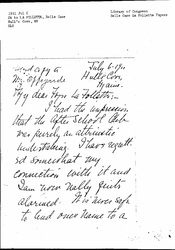 1911 Jul 6
LA FOLLETTE, Belle Case
Hull's Cove, ME
Library of Congress
Belle Case La Follette Papers
July 6-1911
Hull's Cove,
Maine.
My dear Mrs La Follette:-
I had the impression
that the After School Club
was purely an altruistic
undertaking. I have
somewhat my
connection with it and
I am now really quite
alarmed. It is never safe
to lend one's name to a